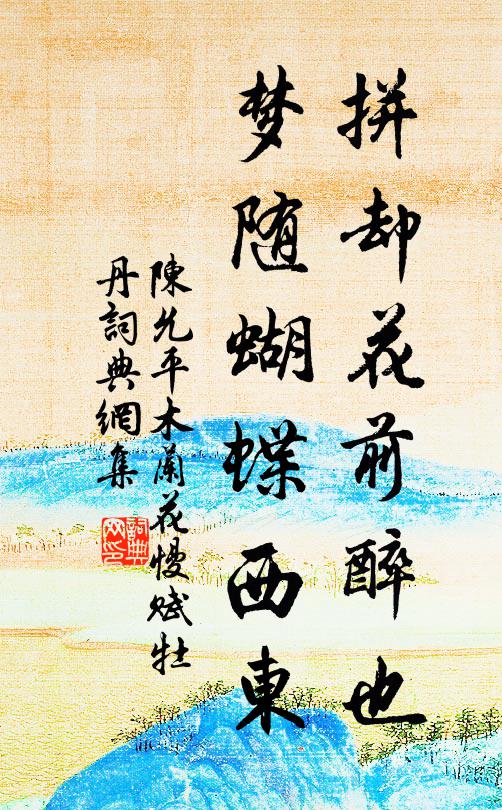 拼却花前醉也
梦随蝴蝶西東
陳允平木蘭花慢赋牡
丹詞典網集
詞典
网印